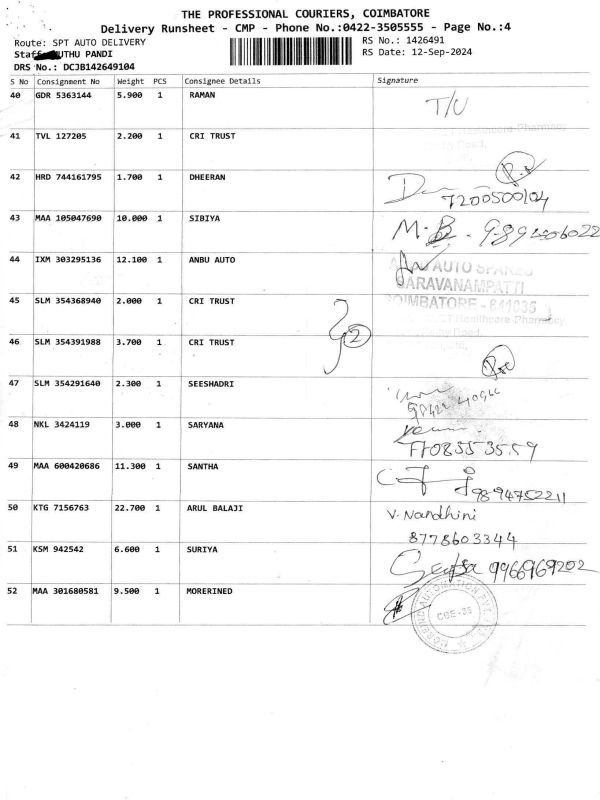 THE PROFESSIONAL COURIERS, COIMBATORE
Delivery Runsheet - CMP - Phone No.:0422-3505555 - Page No.:4
Route: SPT AUTO DELIVERY
RS No.: 1426491
Staff UTHU PANDI
RS Date: 12-Sep-2024
DRS No.: DCJB142649104
S No Consignment No Weight PCS Consignee Details Signature
40 GDR 5363144 5.900 1 RAMAN T/U
41 TVL 127205 2.200 1 CRI TRUST Healthcare-Pharmacy
42 HRD 744161795 1.700 1 DHEERAN
7200500104
43 MAA 105047690 10.000 1 SIBIYA M.B.
44 IXM 303295136 12.100 1 ANBU AUTO AUTO SPARES
SARAVANAMPATTI
45 SLM 354368940 2.000 1 CRI TRUST COIMBATORE - 641035
Healthcare-Pharmacy
2
46 SLM 354391988 3.700 1 CRI TRUST
47 SLM 354291640 2.300 1 SEESHADRI
48 NKL 3424119 3.000 1 SARYANA
49 MAA 600420686 11.300 1 SANTHA
9894752211
50 KTG 7156763 22.700 1 ARUL BALAJI V. Nandhini
8778603344
51 KSM 942542 6.600 1 SURIYA 9966969202
52 MAA 301680581 9.500 1 MORERINED
AUTOMATION PVT
CBE-35